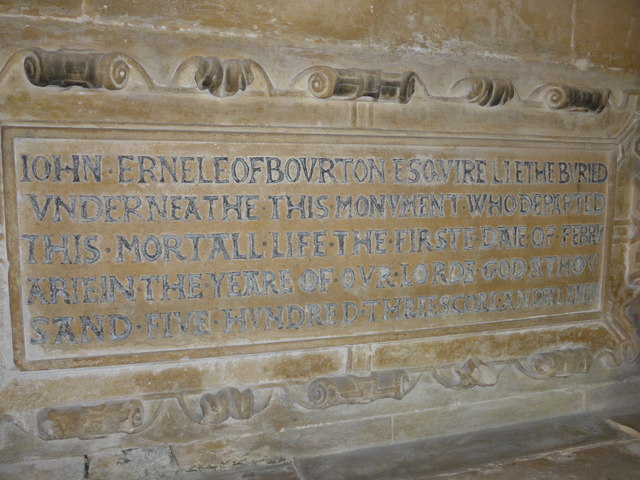 IOHN · ERNELE OF BOVRTON ESQVIRE LIETHE BVRIED
VNDERNEATHE THIS MONVMENT WHO DEPARTED
THIS · MORTALL · LIFE · THE · FIRSTE · DAIE OF FEBRV
ARIE IN THE · YEARE · OF · OVR · LORDE · GOD A THOV
SAND · FIVE · HVNDRED · THREESCORE AND